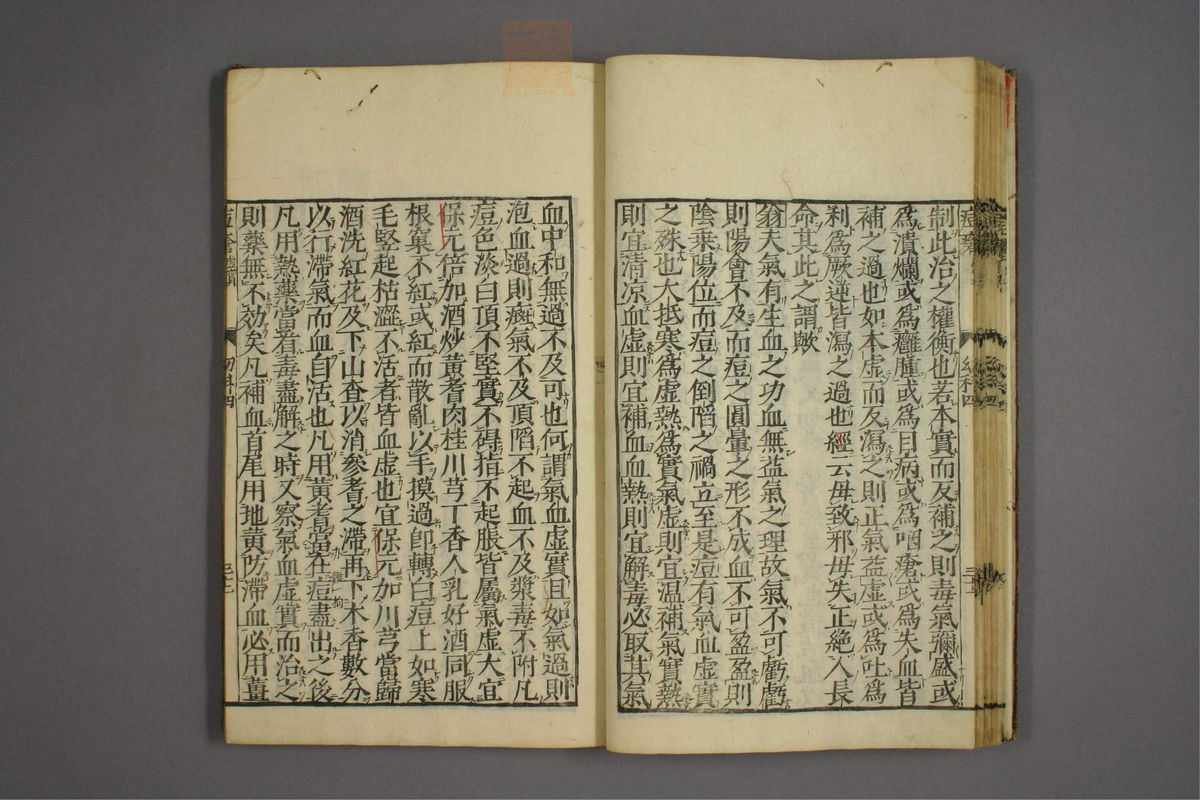 制此治之權衡也若本實而反補之則毒氣彌盛或
爲潰爛或爲癰腫或爲目病或爲咽瘡或爲失血皆
補之過也如本虛而反瀉之則正氣益虛或爲吐爲
利爲厥逆皆瀉之過也經云毋致邪毋失正絕人長
命其此之謂歟
翁夫氣有生血之功血無益氣之理故氣不可虧虧
則陽會不及而痘之圓暈之形不成血不可盈盈則
陰乘陽位而痘之倒陷之禍立至是痘有氣血虛實
之殊也大抵寒爲虛熱爲實氣虛則宜温補氣實熱
則宜清凉血虛則宜補血血熱則宜解毒必取其氣
血中和無過不及可也何謂氣血虛實且如氣過則
泡血過則癍氣不及頂陷不起血不及漿毒不附凡
痘色淡白頂不堅實不碍指不起脹皆屬氣虛大宜
保元倍加酒炒黄耆肉桂川芎丁香人乳好酒同服
根窠不紅或紅而散亂以手摸過即轉白痘上如寒
毛竪起枯澀不活者皆血虛也宜保元加川芎當歸
酒洗紅花及下山查以消參耆之滯再下木香數分
以行滯氣而血自活也凡用黄耆當在痘盡出之後
凡用熱藥當看毒盡解之時又察氣血虛實而治之
則藥無不效矣凡補血首尾用地黄防滯血必用薑
幼科四